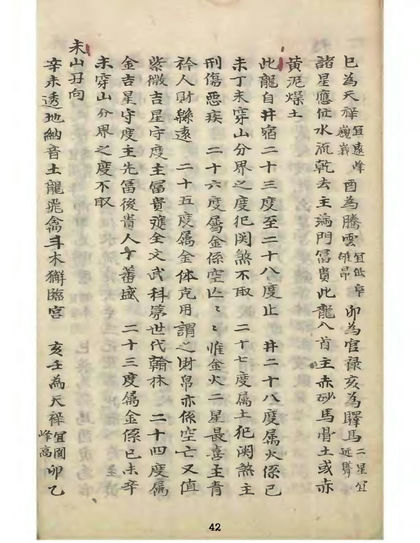 巳為天祥宜遠峰巍峩酉為騰雲宜低阜雄昂卯為官祿亥為驛馬二星宜
諸星應位水流乾去主滿門冨貴此龍八首主赤砂馬骨土或赤
黄泥燥土
此龍自井宿二十三度至二十八度止 井二十八度属火係己
未丁未穿山分界之度犯関煞不取 二十七度属土犯関煞主
刑傷悪疾 二十六度属金係空亡亡惟金火二星最喜主青
衿人財緜遠 二十五度属金体克用謂之財帛亦係空亡又值
紫微吉星守度主冨貴雙全文武科第世代翰林 二十四度属
金吉星守度主先冨後貴人丁蕃盛 二十三度属金係己未辛
未穿山分界之度不取
未山丑向
辛未透地納音土龍飛禽斗木獬臨宫 亥壬為天祥宜圓峰高卯乙
42